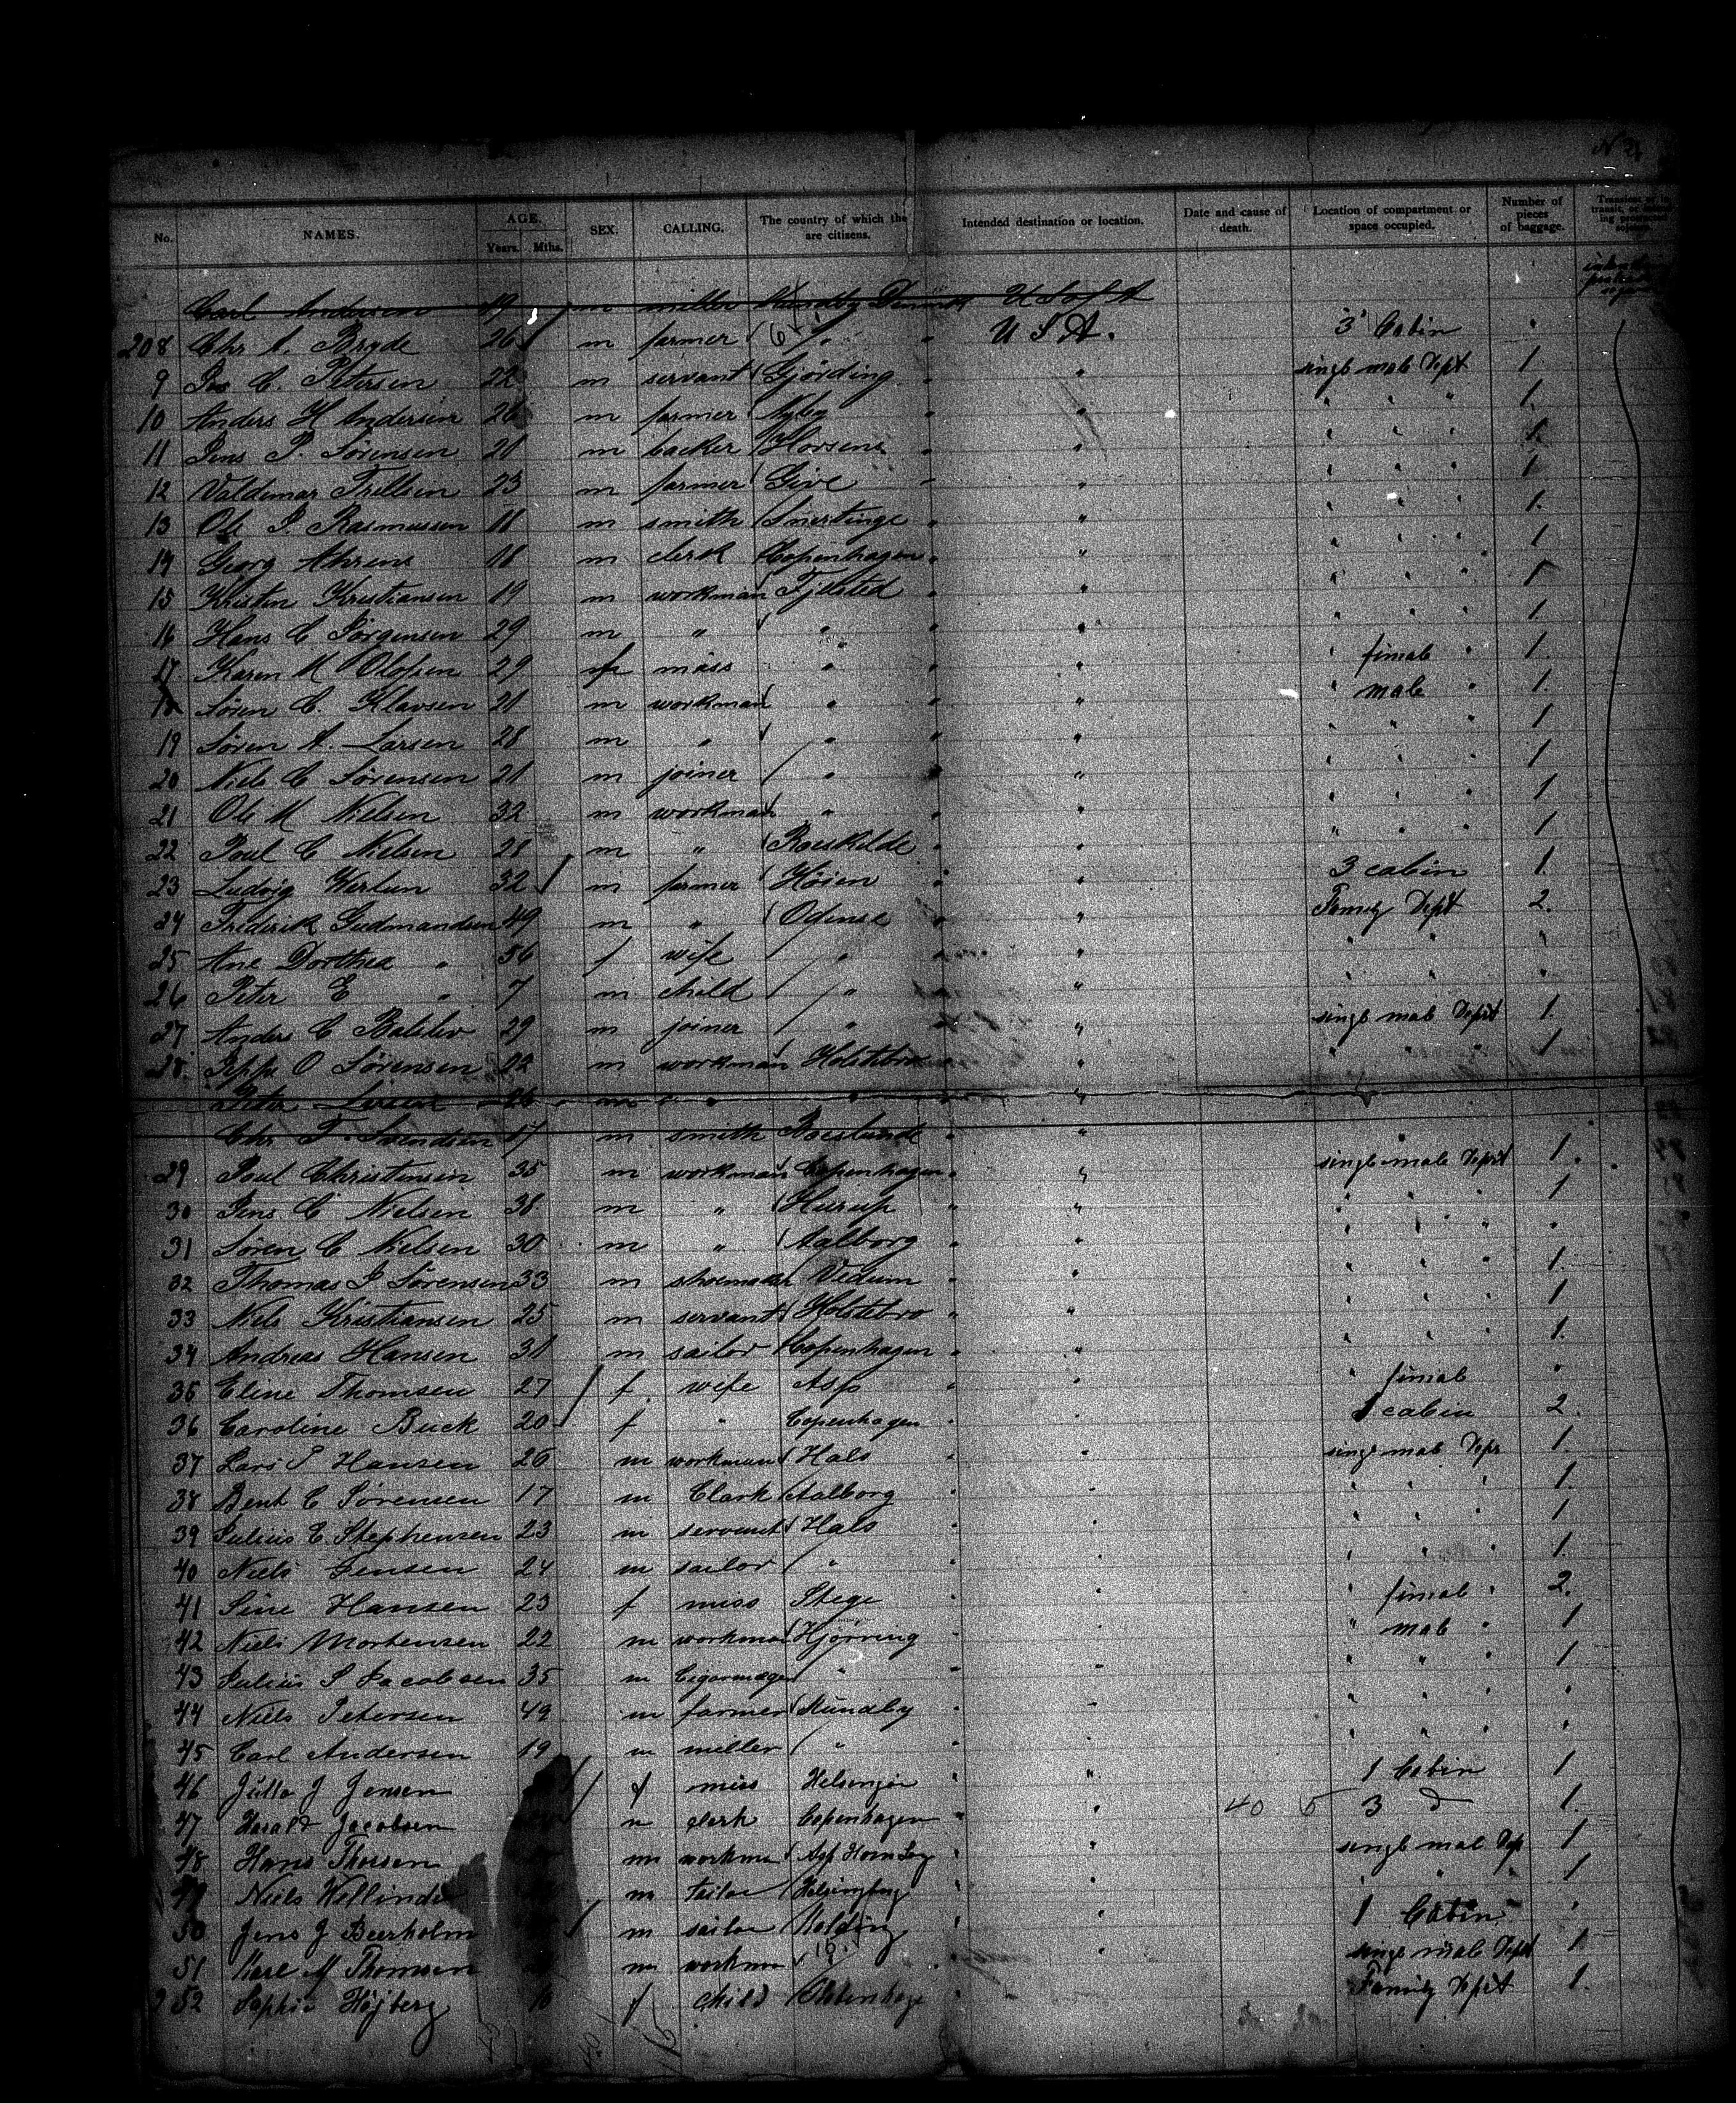 No. NAMES. AGE. Years. Mths. SEX. CALLING. The country of which the are citizens. Intended destination or location. Date and cause of death. Location of compartment or space occupied. Number of pieces of baggage.
Carl Andersen 19 m miller U S of A
208 Chr A. Bryde 26 m farmer " " U S A. 3 Cabin
9 C. Petersen 22 m servant Gjörding " " singl mal Dept 1.
10 Anders H Andersen 26 m farmer Nyby " " " " " 1.
11 Jens P. Sörensen 21 m backer Horsens " " " " " 1.
12 Valdemar Trillsen 23 m farmer Give " " " " " 1
13 Ole P. Rasmussen 18 m smith Snertinge " " " " " 1.
14 Georg Ahrens 18 m clerk Copenhagen " " " " " 1
15 Kristen Kristiansen 19 m workman Fjelsted " " " " " 1
16 Hans C Jörgensen 29 m " " " " " " " 1.
17 Karen M Olofsen 29 f miss " " " " fimal " 1.
18 Sören C. Klavsen 21 m workman " " " " male " 1.
19 Sören A. Larsen 28 m " " " " " " " 1
20 Niels C Sörensen 21 m joiner " " " " " " 1
21 Ole M Nielsen 32 m workman " " " " " " 1
22 Poul C Nielsen 28 m " Roeskilde " " " " " 1
23 Ludvig 32 m farmer Höien " " 3 cabin 1.
24 Frederik Gudmandsen 49 m " Odense " " Family Dept 2.
25 Ane Dorthea " 56 f wife " " " " " "
26 Peter E " 7 m child " " " " " "
27 Anders C Balslev 29 m joiner " " " singl mal Dept 1.
28 Jeppe O Sörensen 22 m workman Holstebro " " " " " 1
Peter m " " " "
Chr 17 m smith Roeslunde " "
29 Poul Christensen 35 m workman Copenhagen " " singl mal Dept 1.
30 Jens C Nielsen 38 m " Hurup " " " " " 1
31 Sören C Nielsen 30 m " Aalborg " " " " " "
32 Thomas J Sörensen 33 m shoemaker Vedum " " " " " 1.
33 Niels Kristiansen 25 m servant Holstebro " " " " " 1
34 Andreas Hansen 31 m sailor Copenhagen " " " " " 1.
35 Eline Thomsen 27 f wife Asp " " " fimal "
36 Caroline Buck 20 f " Copenhagen " " 1 cabin 2.
37 Lars P Hansen 26 m workman Hals " " singl mal Dept 1.
38 Bent C Sörensen 17 m Clark Aalborg " " " " " 1.
39 Julius C Stephensen 23 m servant Hals " " " " " 1
40 Niels Jensen 24 m sailor " " " " " " 1.
41 Sine Hansen 23 f miss Stege " " " fimal " 2.
42 Niels Mortensen 22 m workman Hjörring " " " mal " 1
43 Julius S Jacobsen 35 m Cigarmager " " " " " " 1
44 Niels Petersen 49 m farmer Kundby " " " " " "
45 Carl Andersen 19 m miller " " " " "
46 Jutta J Jensen f miss Helsingör " " 1 Cabin 1
47 Harald Jacobsen m clerk Copenhagen " " 40 5 3 d 1.
48 Hans m workman " " singl mal Dep 1
49 Niels m tailor Helsingborg " " " " 1
50 Jens J Beerholm m sailor Kolding " " 1 Cabin "
51 Karl M Thomsen m workman " " singl male Dept 1
252 Sophie Höjberg f child " Family Dept 1.